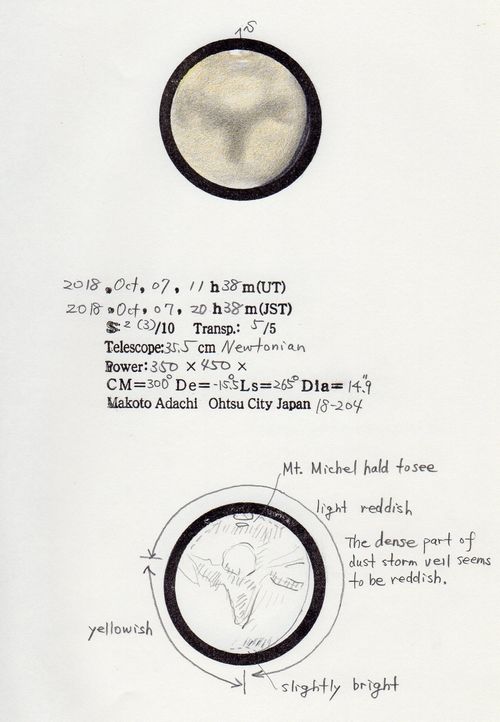 S
2018. Oct. 07. 11 h 38 m(UT)
2018. Oct. 07. 20 h 38 m(JST)
S: 2 (3)/10 Transp.: 5/5
Telescope: 35.5 cm Newtonian
Power: 350 × 450 ×
CM=300° De=-15.5 Ls=265° Dia=14.″9
Makoto Adachi Ohtsu City Japan 18-204
Mt. Michel hald tosee
light reddish
The dense part of
dust storm veil seems
to be reddish.
yellowish
slightly bright